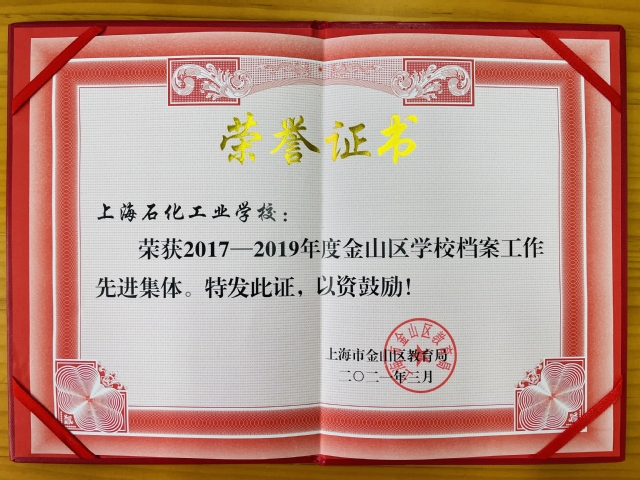 荣誉证书
上海石化工业学校：
荣获2017—2019年度金山区学校档案工作
先进集体。特发此证，以资鼓励！
上海市金山区教育局
二〇二一年三月
上海市金山区教育局